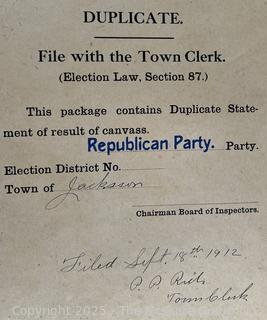 DUPLICATE.
File with the Town Clerk.
(Election Law, Section 87.)
This package contains Duplicate State-
ment of result of canvass.
Republican Party. Party.
Election District No.
Town of Jackson
Chairman Board of Inspectors.
Filed Sept. 18th 1912
P. P.
Town Clerk
Copyright 2025